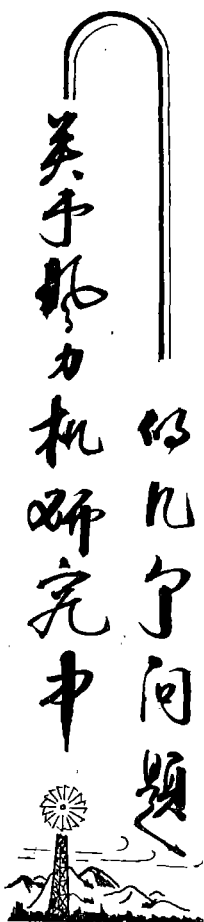 关于风力机研究中
的几个问题